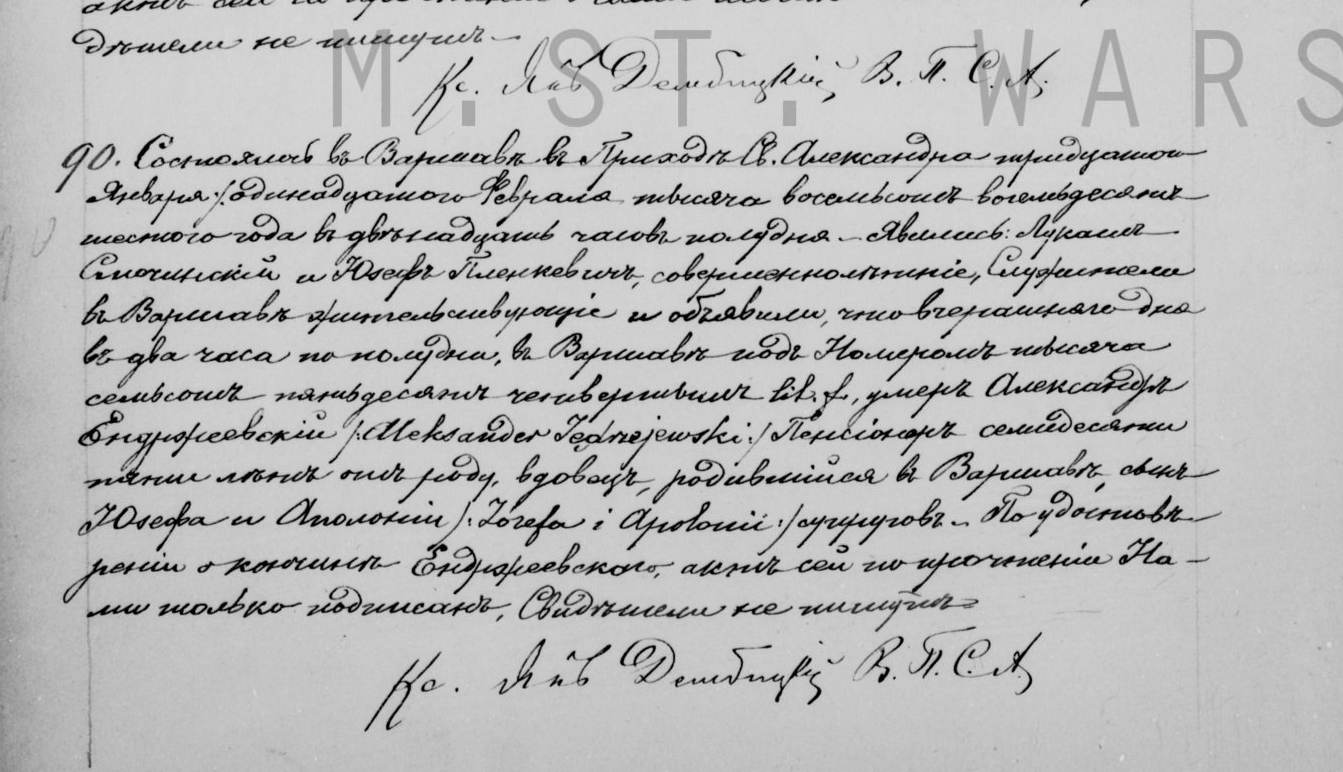 дѣтели не пишутъ. —
Кс. Янъ Дембицкій В. П. С. А.
M.ST. WARS
90. Состоялось въ Варшавѣ въ Приходѣ Св. Александра тридцатого
Января /: одинадцатого Февраля тысяча восемьсотъ восемьдесятъ
шестого года въ двѣнадцать часовъ полудня. — Явились: Лукашъ
и Юзефъ Пленкевичъ, совершеннолѣтніе, Служители
въ Варшавѣ жительствующіе и объявили, что вчерашняго дня
въ два часа по полудни, въ Варшавѣ подъ Номеромъ тысяча
семьсотъ пятьдесятъ четвертымъ lit. f., умеръ Александръ
Енджеевскій /: Aleksander Jędrzejewski :/ Пенсіонеръ семидесяти
пяти лѣтъ отъ роду, вдовецъ, родившійся въ Варшавѣ, сынъ
Юзефа и Аполоніи /: Józefa i Apolonii :/ супруговъ. — По удостовѣ-
реніи о кончинѣ Енджеевского, актъ сей по прочтеніи На-
ми только подписанъ, Свидѣтели не пишутъ =
Кс. Янъ Дембицкій В. П. С. А.